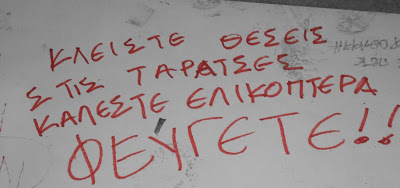 ΚΛΕΙΣΤΕ ΘΕΣΕΙΣ
ΣΤΙΣ ΤΑΡΑΤΣΕΣ
ΚΑΛΕΣΤΕ ΕΛΙΚΟΠΤΕΡΑ
ΦΕΥΓΕΤΕ!!